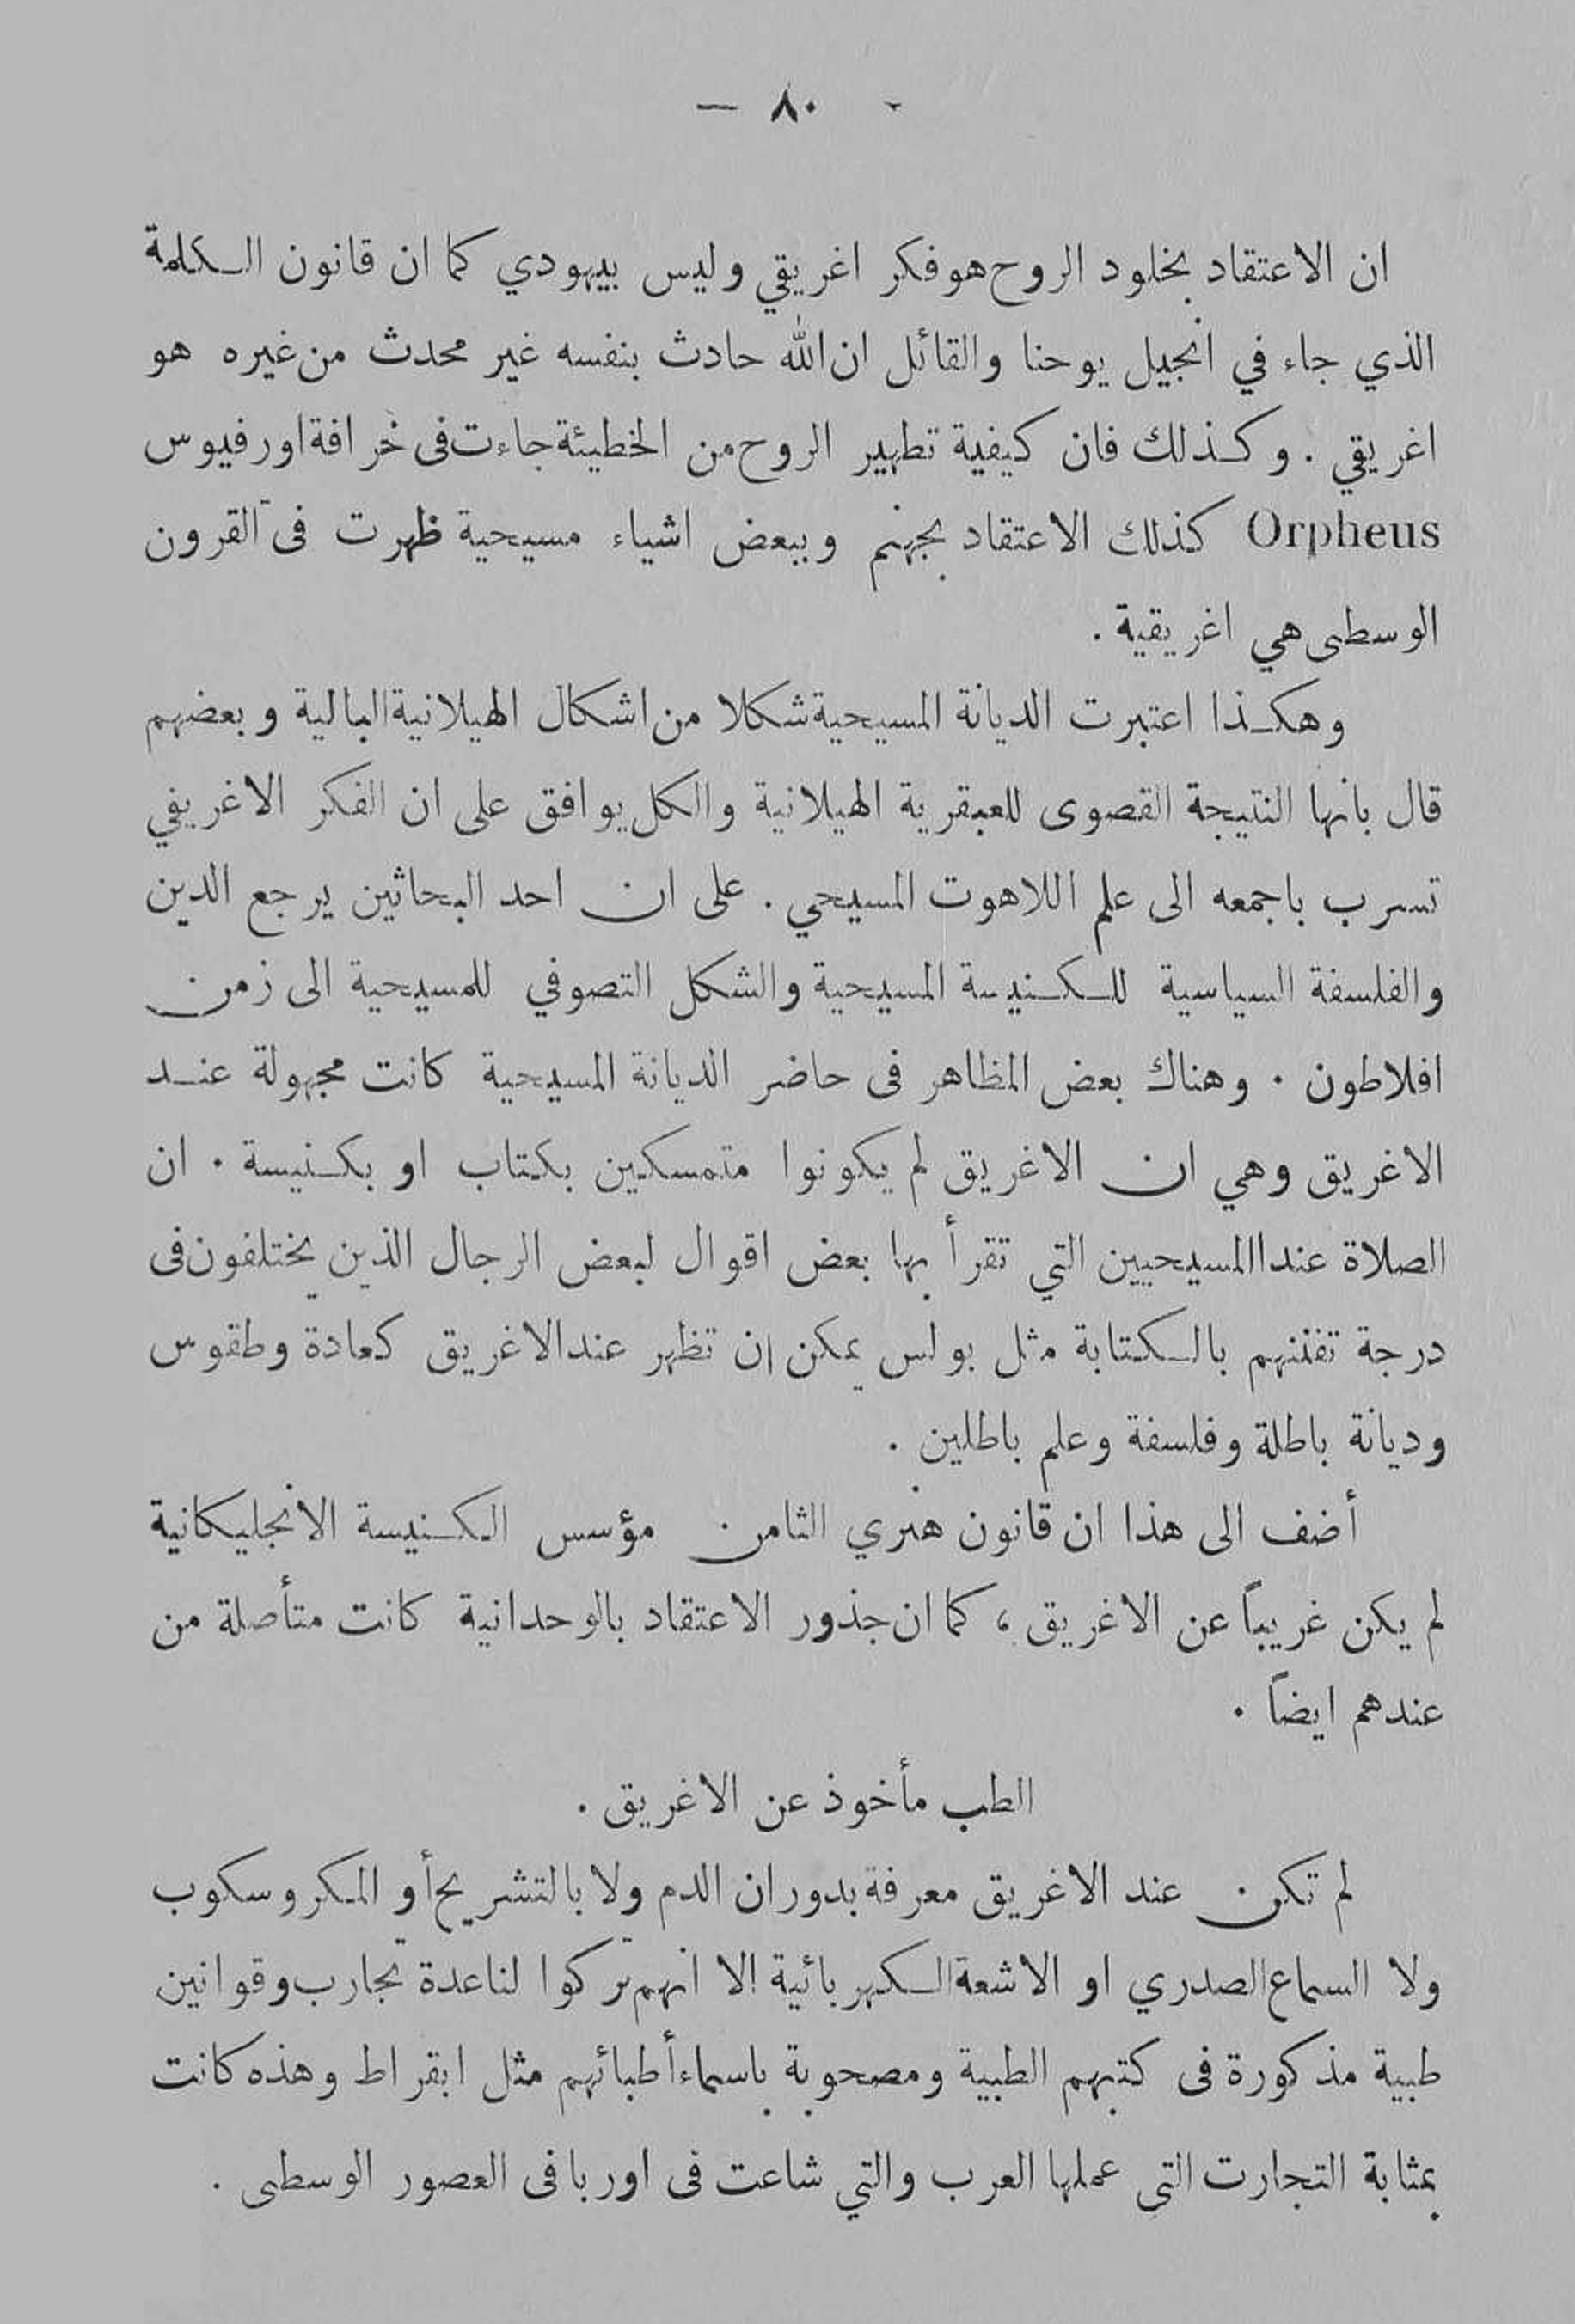 — ٨٠ -
ان الاعتقاد بخلود الروح هو فكر اغريقي وليس بيهودي كما ان قانون الكلمة
الذي جاء في انجيل يوحنا والقائل ان الله حادث بنفسه غير محدث من غيره هو
اغريقي . وكذلك فان كيفية تطهير الروح من الخطيئة جاءت فى خرافة اورفيوس
Orpheus كذلك الاعتقاد بجهنم وببعض اشياء مسيحية ظهرت فى القرون
الوسطى هي اغريقية .
وهكذا اعتبرت الديانة المسيحية شكلا من اشكال الهيلانية البالية وبعضهم
قال بانها النتيجة القصوى للعبقرية الهيلانية والكل يوافق على ان الفكر الاغريقي
تسرب باجمعه الى علم اللاهوت المسيحي . على ان احد البحاثين يرجع الدين
والفلسفة السياسية للكنيسة المسيحية والشكل التصوفي للمسيحية الى زمن
افلاطون . وهناك بعض المظاهر فى حاضر الديانة المسيحية كانت مجهولة عند
الاغريق وهي ان الاغريق لم يكونوا متمسكين بكتاب او بكنيسة . ان
الصلاة عند االمسيحيين التي تقرأ بها بعض اقوال لبعض الرجال الذين يختلفون فى
درجة تفننهم بالكتابة مثل بولس يمكن ان تظهر عند الاغريق كعادة وطقوس
وديانة باطلة وفلسفة وعلم باطلين .
أضف الى هذا ان قانون هنري الثامن مؤسس الكنيسة الانجليكانية
لم يكن غريباً عن الاغريق ، كما ان جذور الاعتقاد بالوحدانية كانت متأصلة من
عندهم ايضاً .
الطب مأخوذ عن الاغريق .
لم تكن عند الاغريق معرفة بدوران الدم ولا بالتشريح أو المكروسكوب
ولا السماع الصدري او الاشعة الكهربائية إلا انهم تركوا لنا عدة تجارب وقوانين
طبية مذكورة فى كتبهم الطبية ومصحوبة باسماء أطبائهم مثل ابقراط وهذه كانت
بمثابة التجارت التي عملها العرب والتي شاعت فى اوربا فى العصور الوسطى .